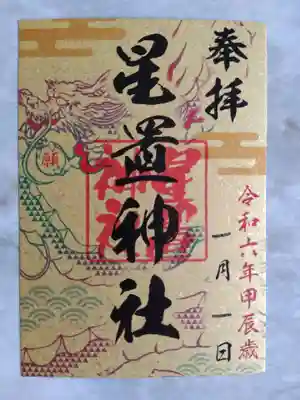 奉拝
星置神社
令和六年甲辰歳
一月一日
願